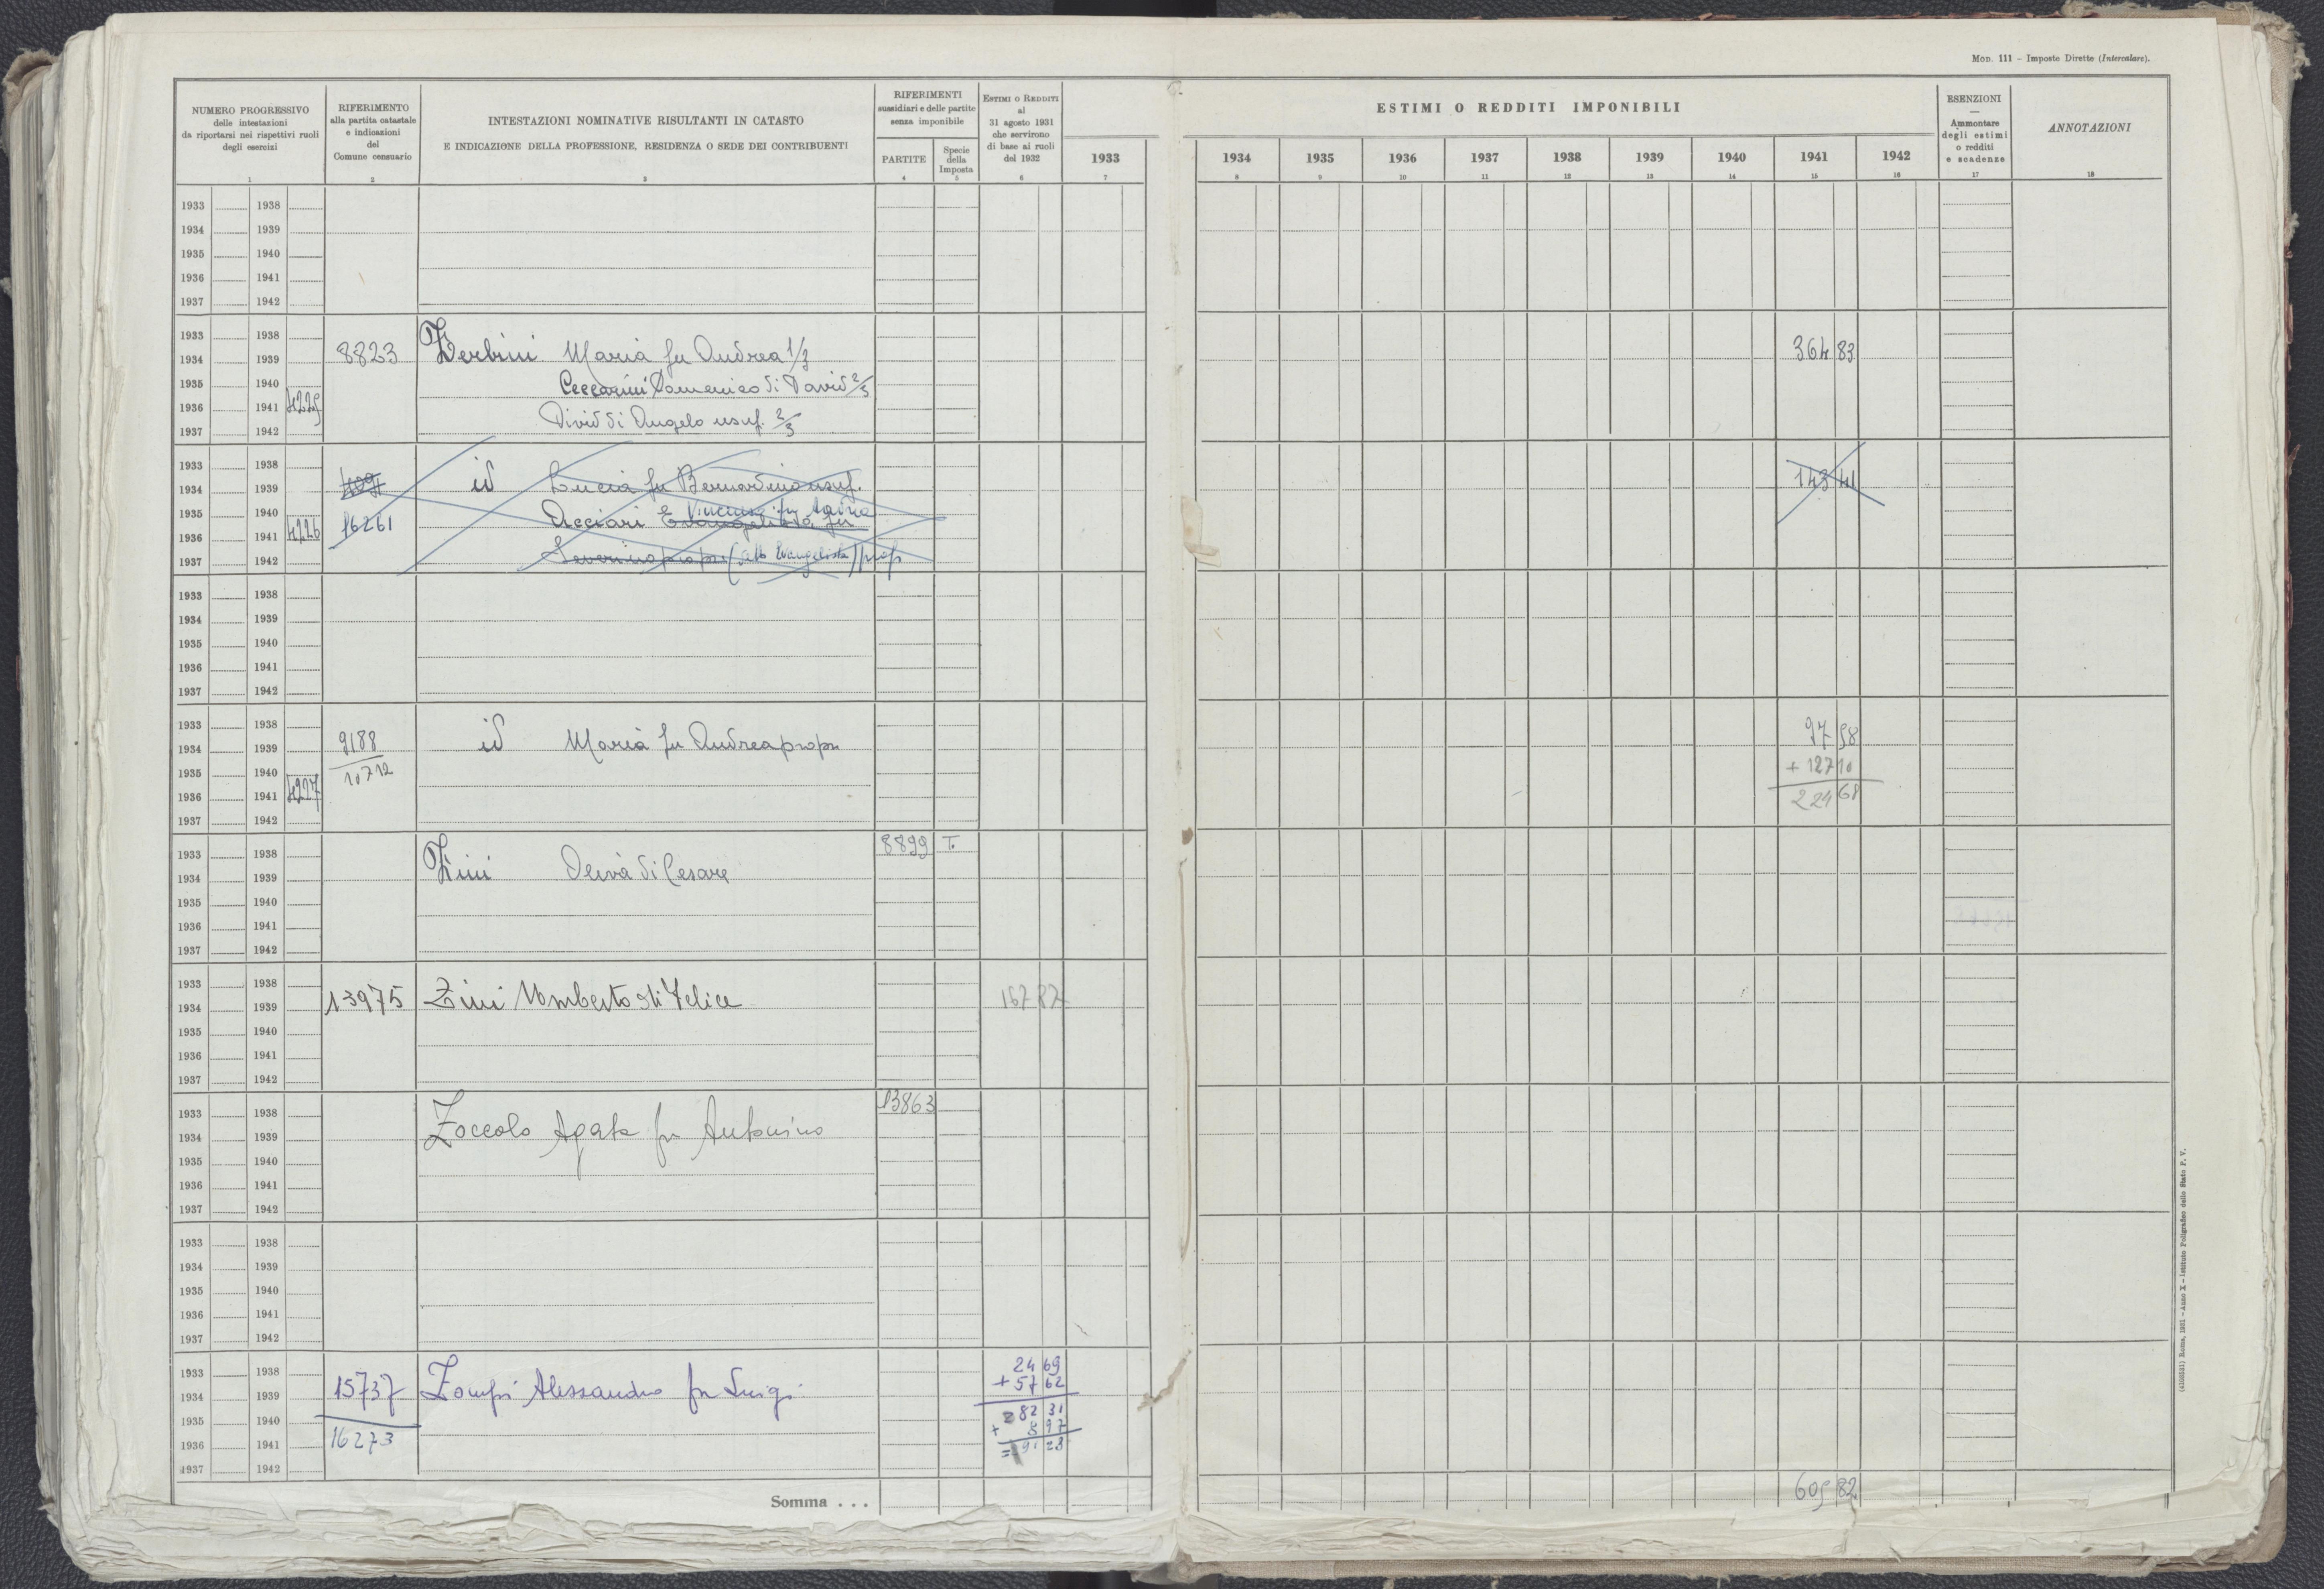 Mon. 111 - Imposte Dirette (Intercalare).
NUMERO PROGRESSIVO
delle intestazioni
da riportarsi nei rispettivi ruoli
degli esercizi
1
RIFERIMENTO
alla partita catastale
e indicazioni
del
Comune censuario
2
INTESTAZIONI NOMINATIVE RISULTANTI IN CATASTO
E INDICAZIONE DELLA PROFESSIONE, RESIDENZA O SEDE DEI CONTRIBUENTI
3
RIFERIMENTI
sussidiari e delle partite
senza imponibile
PARTITE
4
Specie
della
Imposta
5
ESTIMI O REDDITI
al
31 agosto 1931
che servirono
di base ai ruoli
del 1932
6
ESTIMI O REDDITI IMPONIBILI
1933 1934 1935 1936 1937 1938 1939 1940 1941 1942
7 8 9 10 11 12 13 14 15 16
ESENZIONI
—
Ammontare
degli estimi
o redditi
e scadenze
17
ANNOTAZIONI
18
1933 1938
1934 1939
1935 1940
1936 1941
1937 1942
1933 1938
1934 1939 8823 Zerbini Maria fu Andrea 1/3 364 83
1935 1940 Ceccarini Domenico di David 2/3
1936 1941 4225
1937 1942 David di Angelo usuf. 2/3
1933 1938
1934 1939 id Lucia fu Bernardino usuf. 143 41
1935 1940 16261 Acciari Evangelista fu
1936 1941 4226
1937 1942 Severino propr (detto Evangelista) prop
1933 1938
1934 1939
1935 1940
1936 1941
1937 1942
1933 1938
1934 1939 9188 id Maria fu Andrea propr 97 58
1935 1940 10712 + 127 10
1936 1941 4227 224 68
1937 1942
1933 1938 8899 T.
1934 1939 Zini di Cesare
1935 1940
1936 1941
1937 1942
1933 1938
1934 1939 13975 Zini Umberto di Felice 167 87
1935 1940
1936 1941
1937 1942
1933 1938 13863
1934 1939 Zoccolo Agata fu Antonino
1935 1940
1936 1941
1937 1942
1933 1938
1934 1939
1935 1940
1936 1941
1937 1942
1933 1938 24 69
1934 1939 15737 Zompi Alessandro fu Luigi + 57 62
1935 1940 = 82 31
1936 1941 16273 + 8 97
1937 1942 = 91 28
Somma . . . 609 82
(4100251) Roma, 1931 - Anno X - Istituto Poligrafico dello Stato P. V.